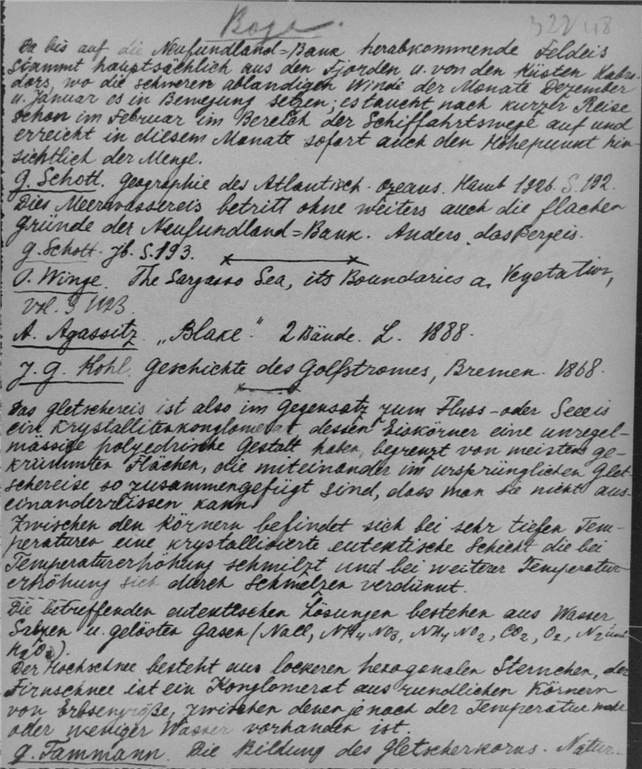 322/48
Da bis auf die Neufundland=Bank herabkommende Feldeis
stammt hauptsächlich aus den Fjorden u. von den Küsten Labra-
dors, wo die schweren ablandigen Winde der Monate Dezember
u. Januar es in Bewegung setzen; es taucht nach kurzer Reise
schon im Februar im Bereich der Schiffahrtswege auf und
erreicht in diesem Monate sofort auch den Höhepunkt hin-
sichtlich der Menge.
G. Schott. Geographie des Atlantisch. Ozeans. Hamb 1926. S. 192.
Dies Meerwassereis betritt ohne weiters auch die flachen
Gründe der Neufundland=Bank. Anders das Bergeis.
G. Schott. Jb. S. 193.
O. Winge. The Sargasso Sea, its Boundaries a. Vegetation,
Vol. 3 1923.
A. Agassitz „Blake“ 2 Bände. L. 1888.
J. G. Kohl. Geschichte des Golfstromes, Bremen. 1868.
Das Gletschereis ist also im Gegensatz zum Fluss- oder Seeeis
ein Krystallitenkonglomerat dessen Eiskörner eine unregel-
mässige polyedrische Gestalt haben, begrenzt von meistens ge-
krümmten Flächen, die miteinander im ursprünglichen Glet
schereise so zusammengefügt sind, dass man sie nicht aus-
einanderreissen kann.
Zwischen den Körnern befindet sich bei sehr tiefen Tem-
peraturen eine krystallisierte eutektische Schicht die bei
Temperaturerhöhung schmilzt und bei weiterer Temperatur
erhöhung sich durch Schmelzen verdünnt.
Die betreffenden eutektischen Lösungen bestehen aus Wasser,
Salzen u. gelösten Gasen (NaCl, NH4NO3, NH4NO2, CO2, O2, N2 und
H2O2).
Der Hochschnee besteht aus lockeren hexagonalen Sternchen, der
Firnschnee ist ein Konglomerat aus rundlichen Körnern
von Erbsengröße, zwischen denen je nach der Temperatur mehr
oder weniger Wasser vorhanden ist.
G. Tammann. Die Bildung des Gletscherkorns. Natur-